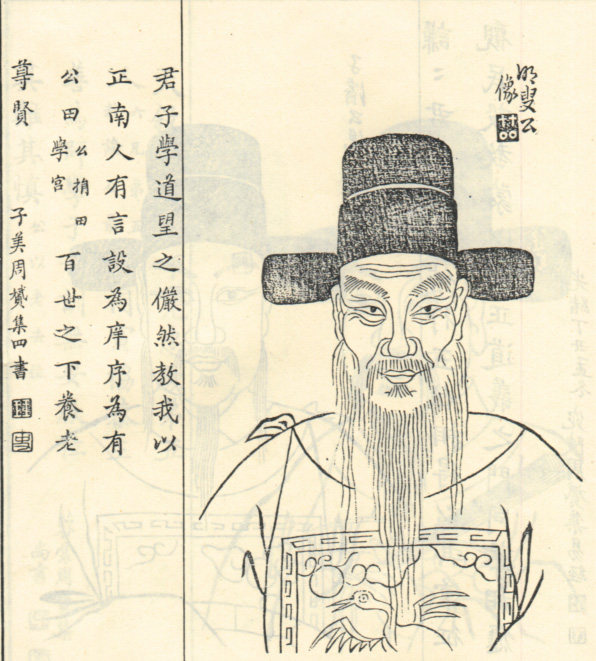 明叟公
像
君子學道望之儼然教我以
正南人有言設為庠序為有
公田公捐田學宮百世之下養老
尊賢
子美周贊集四書